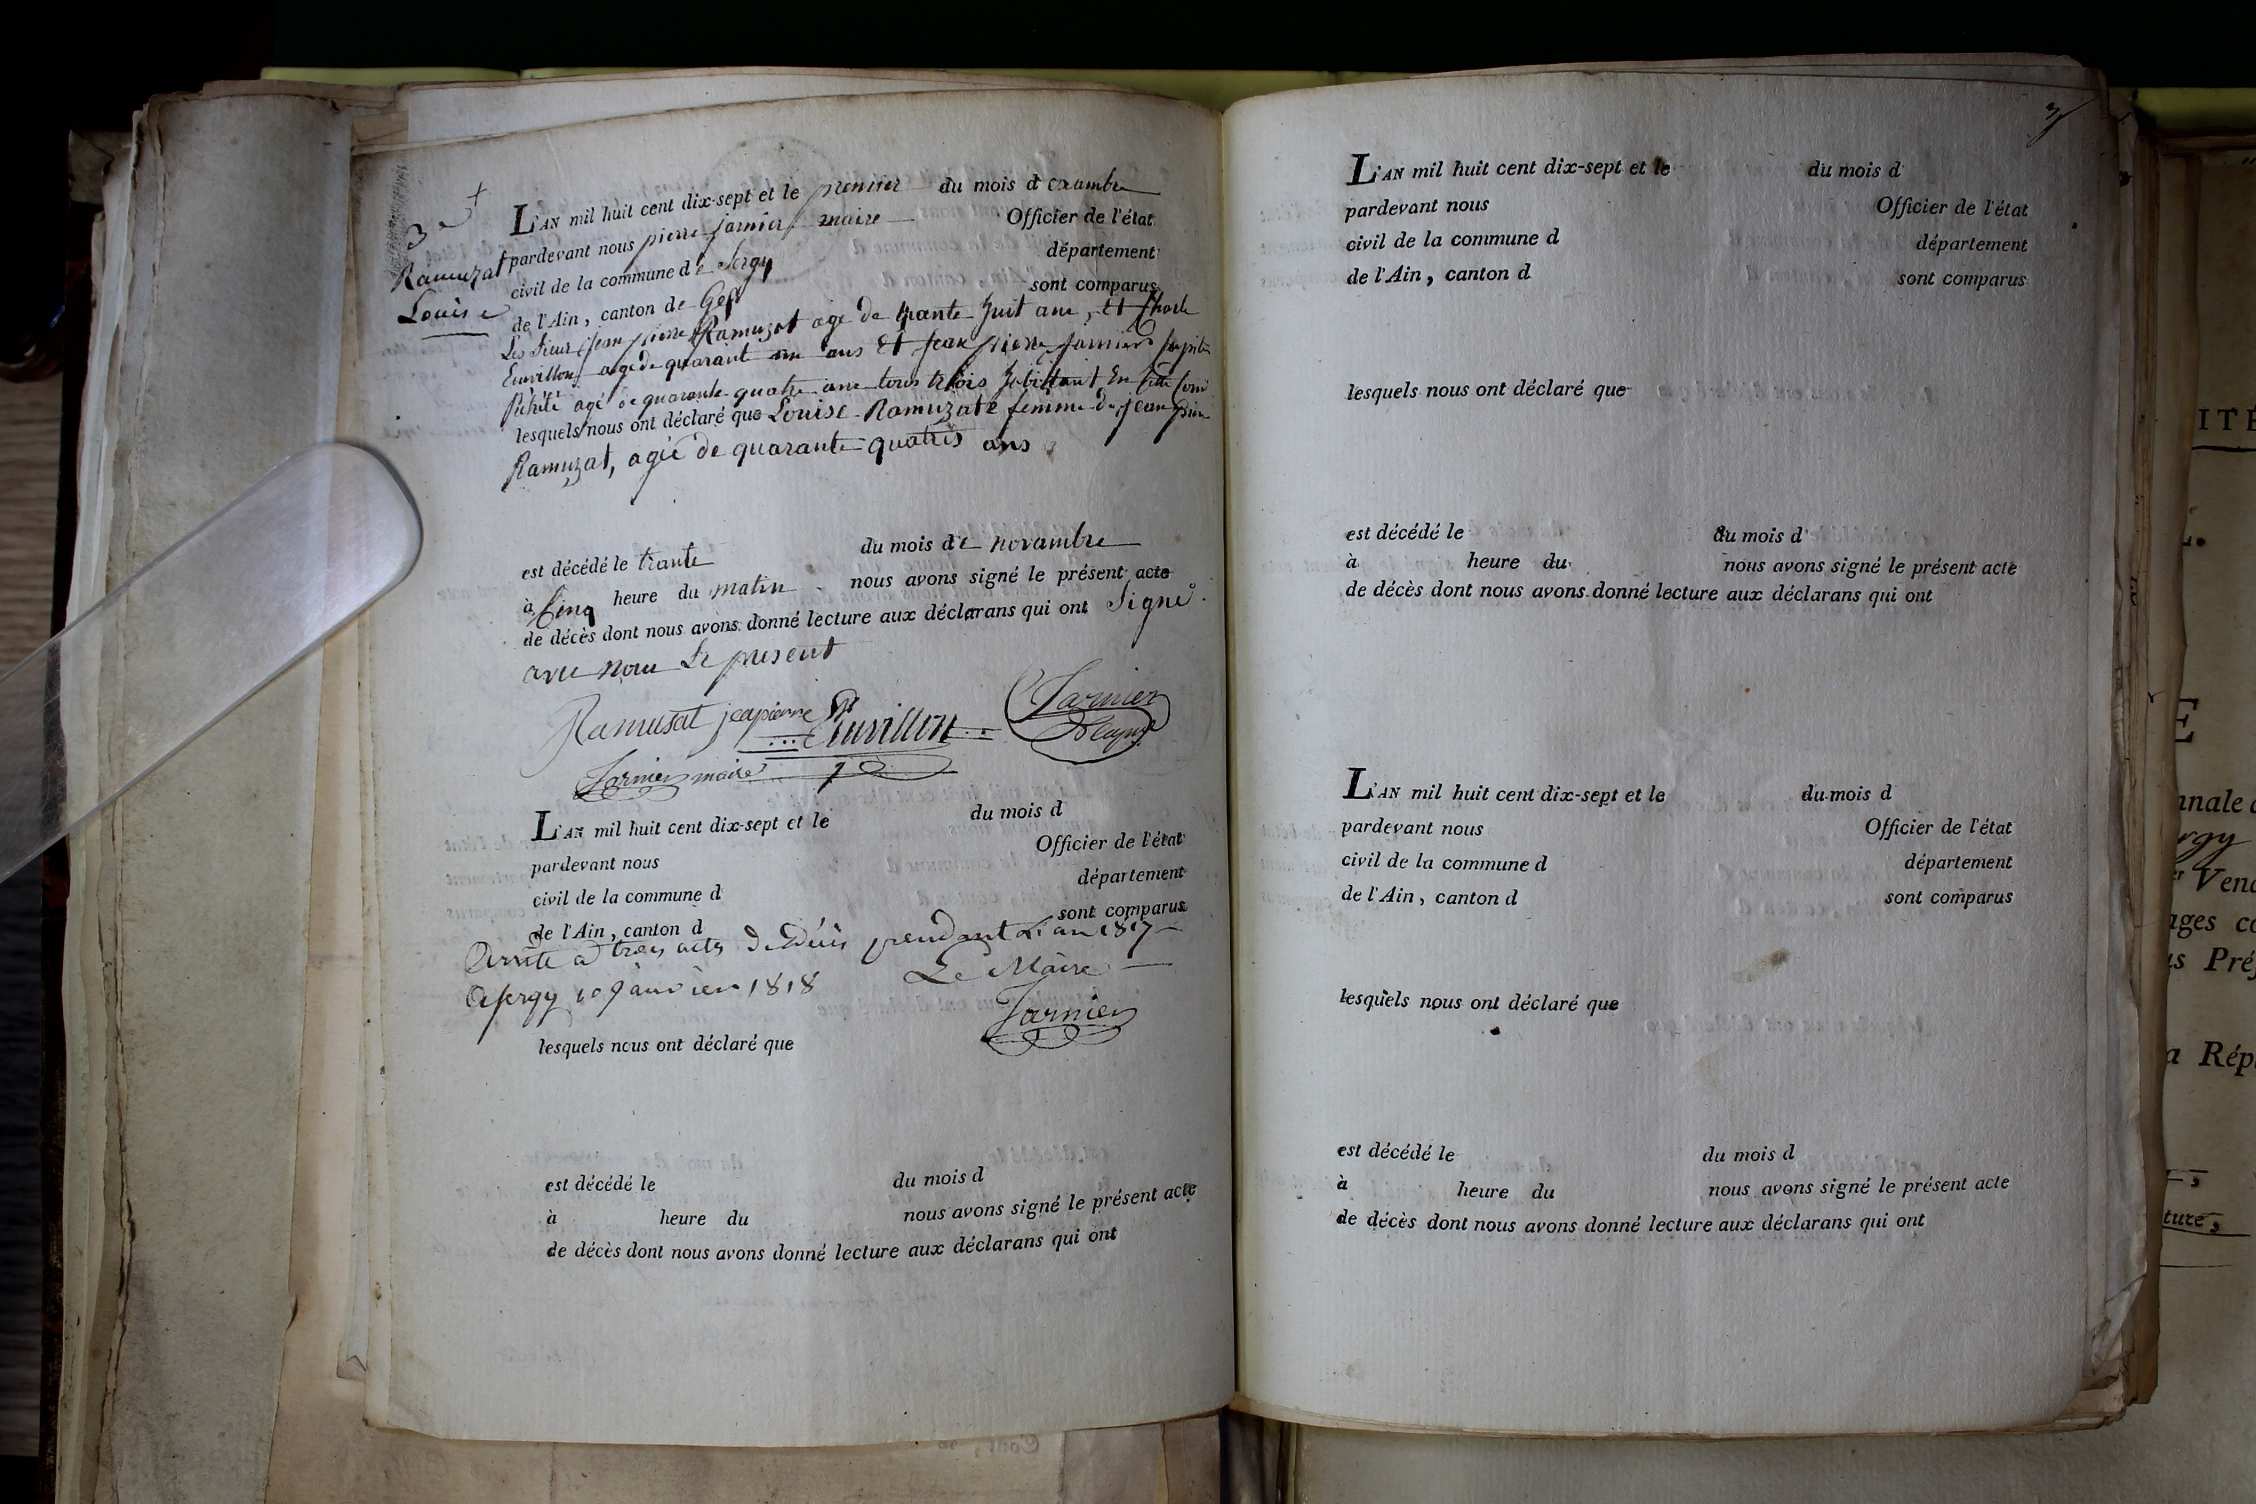 3e
Ramuzat
Louise
L'AN mil huit cent dix-sept et le premier du mois d exambre
pardevant nous pierre jarnier maire Officier de l'état
civil de la commune de Sergy département
de l'Ain, canton de Gex sont comparus
Les sieur jean pierre Ramuzat agé de trante huit ans, et
Euvillon agé de quarant ans Et jean pierre jarnier
agé de quarante quatre ans tous trois habittant En
lesquels nous ont déclaré que Louise Ramuzat femme de jean pierre
Ramuzat, agée de quarante quatres ans
est décédé le trante du mois de novambre
à Cinq heure du matin nous avons signé le présent acte
de décès dont nous avons donné lecture aux déclarans qui ont Signé
avec nous Le present
Ramusat jeapierre Euvillon Jarnier
Jarnier maire
L'AN mil huit cent dix-sept et le du mois d
pardevant nous Officier de l'état
civil de la commune d département
de l'Ain, canton d sont comparus
Arrêté a trois acts de Décès pendant L'an 1817
A sergy 1er janvier 1818 Le Maire
Jarnier
lesquels nous ont déclaré que
est décédé le du mois d
à heure du nous avons signé le présent acte
de décès dont nous avons donné lecture aux déclarans qui ont
3
L'AN mil huit cent dix-sept et le du mois d
pardevant nous Officier de l'état
civil de la commune d département
de l'Ain, canton d sont comparus
lesquels nous ont déclaré que
est décédé le du mois d
à heure du nous avons signé le présent acte
de décès dont nous avons donné lecture aux déclarans qui ont
L'AN mil huit cent dix-sept et le du mois d
pardevant nous Officier de l'état
civil de la commune d département
de l'Ain, canton d sont comparus
lesquels nous ont déclaré que
est décédé le du mois d
à heure du nous avons signé le présent acte
de décès dont nous avons donné lecture aux déclarans qui ont